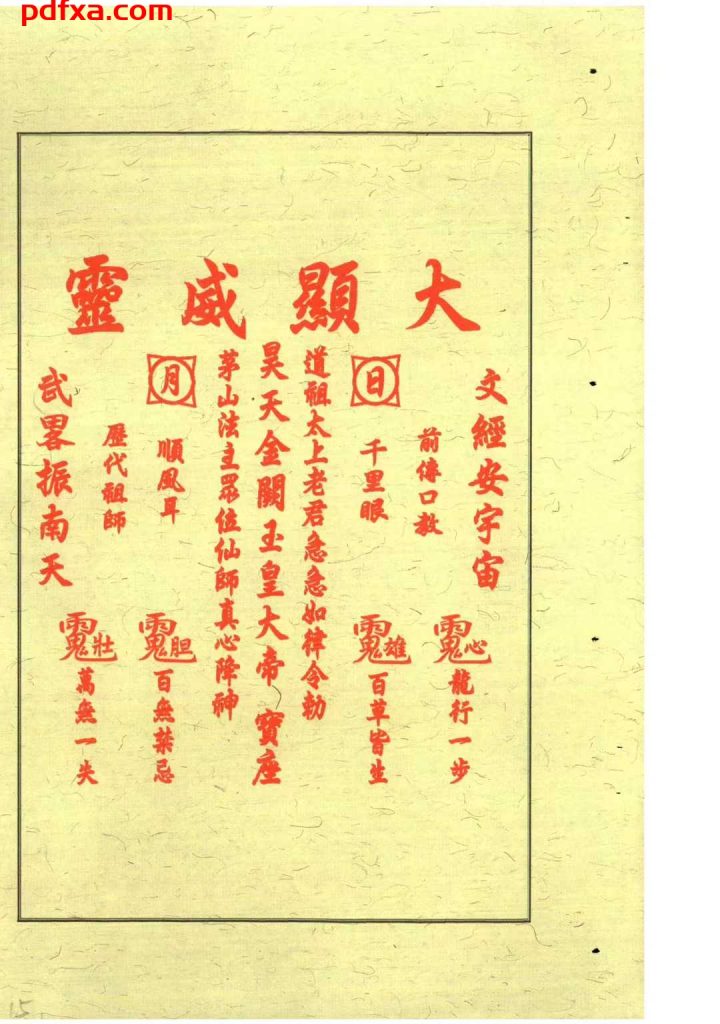 pdfxa.com
大顯威靈
文經安宇宙
前傳口教
日
千里眼
道祖太上老君急急如律令勅
昊天金闕玉皇大帝 寶座
茅山法主眾位仙師真心降神
月
順風耳
歷代祖師
武畧振南天
心
龍行一步
雄
百草皆生
胆
百無禁忌
壯
萬無一失
15